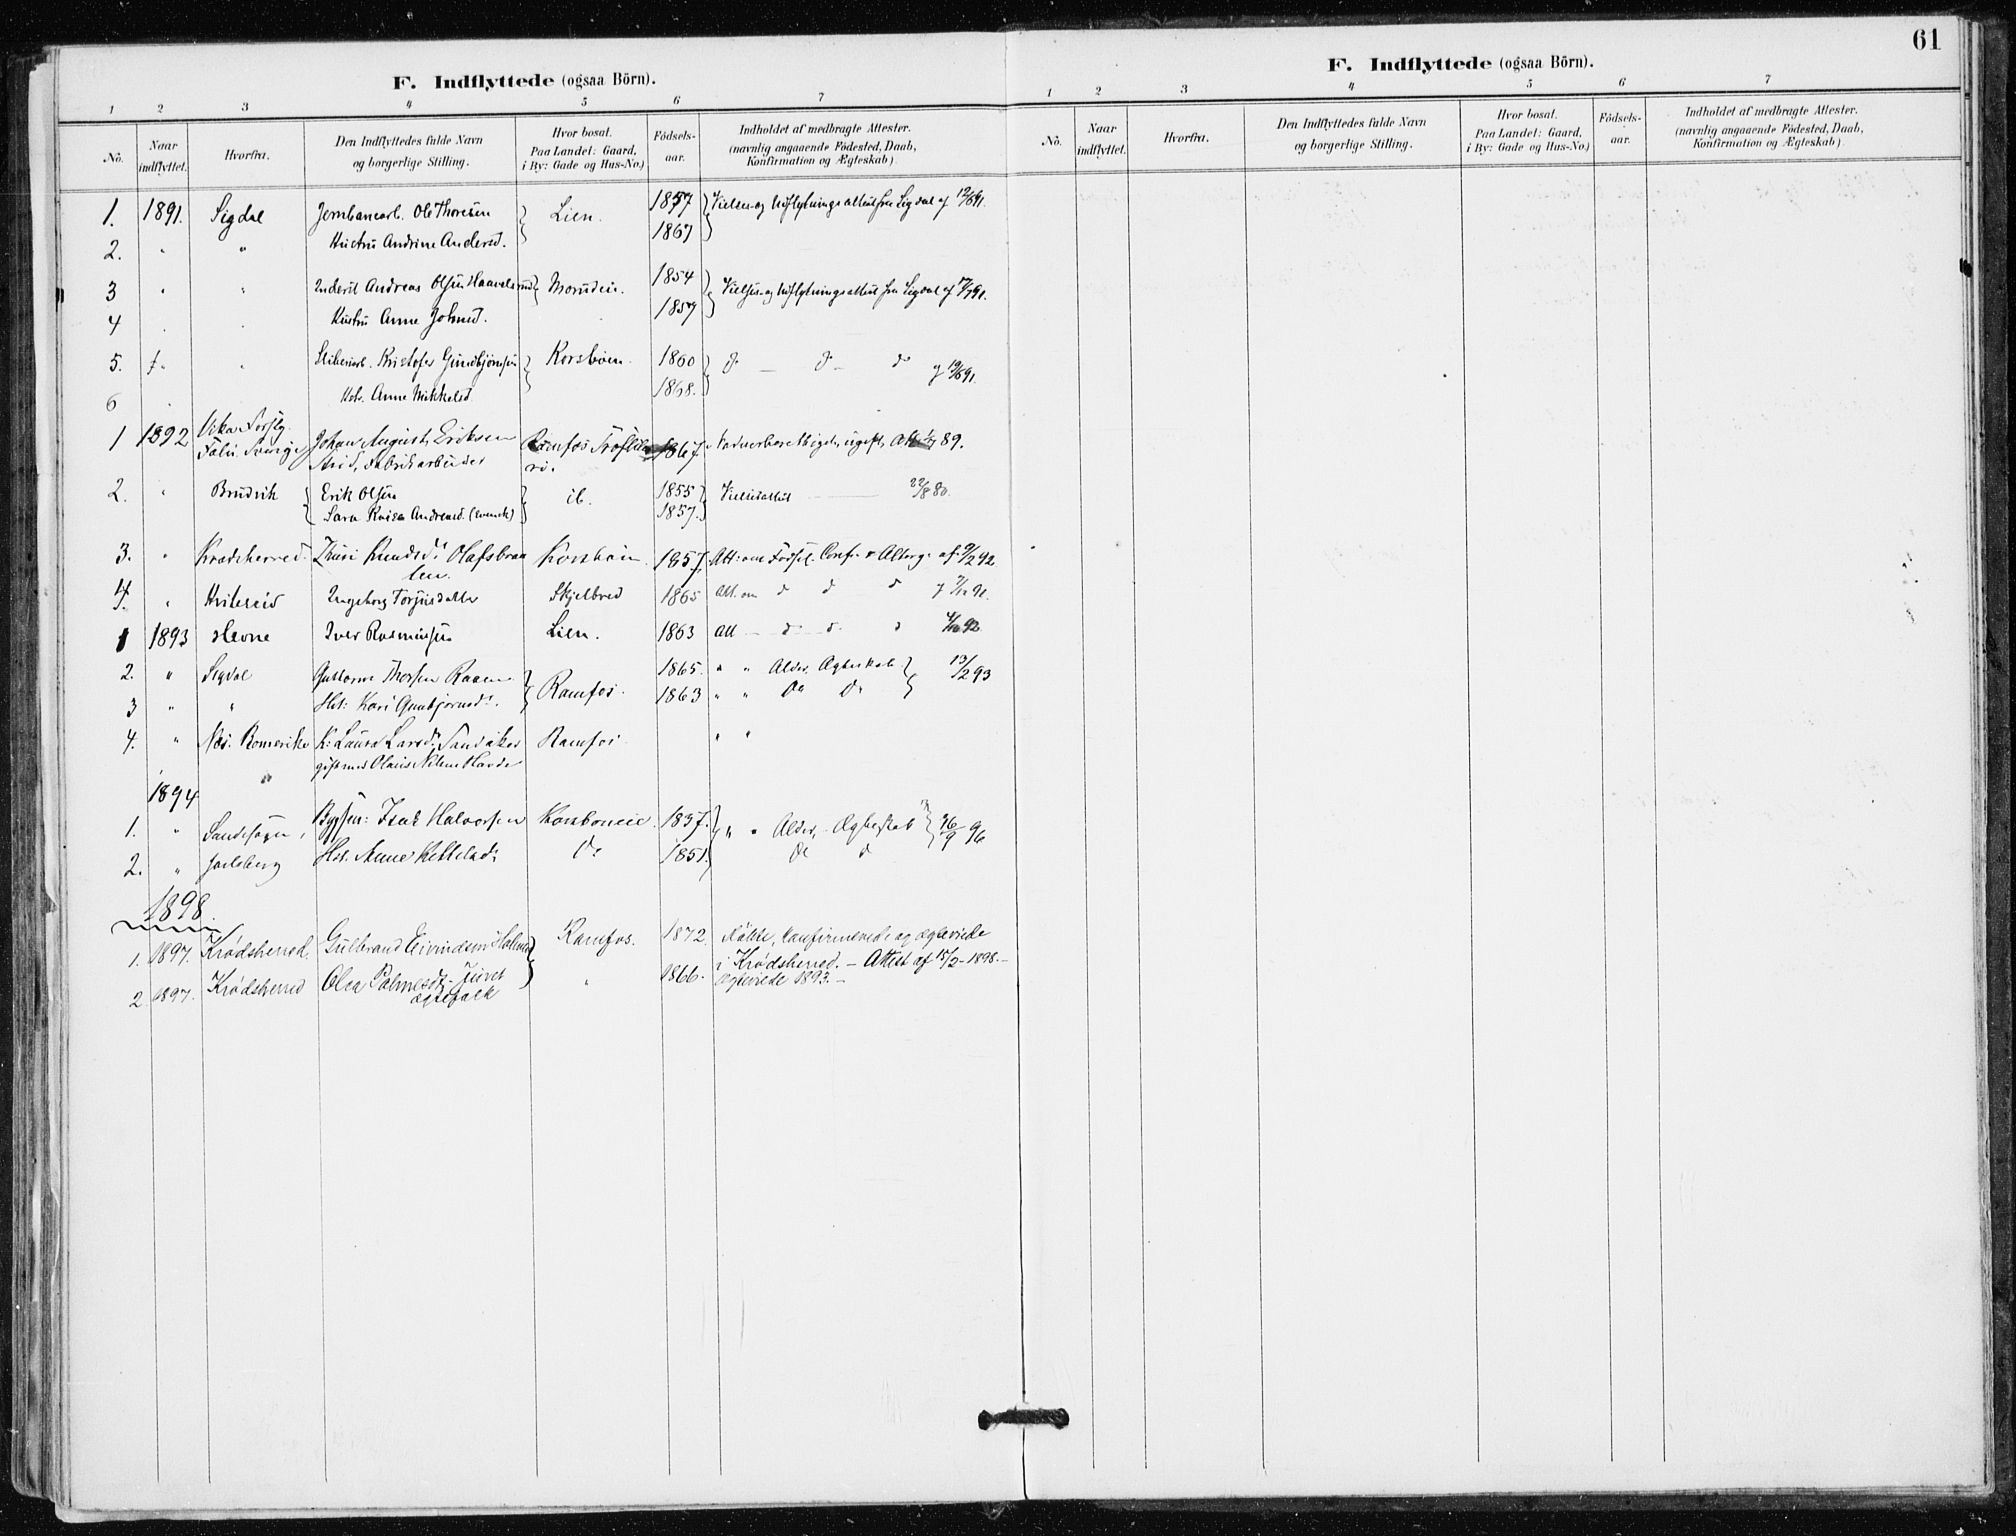 61
F. Indflyttede (ogsaa Börn).
1 2 3 4 5 6 7
No. Naar indflyttet. Hvorfra. Den Indflyttedes fulde Navn og borgerlige Stilling. Hvor bosat. Paa Landet: Gaard, i By: Gade og Hus-No.) Födsels-aar. Indholdet af medbragte Attester. (navnlig angaaende Födested, Daab, Konfirmation og Ægteskab)
1. 1891. Sigdal Jernbanearb. Ole Thoresen Lien. 1857 Vielses- og Udflytningsattest fra Sigdal af 12/6 91.
2. " " Hustru Andrine Andersd. 1867
3 " " Inderst Andreas Olsen Haavelsrud Moruden. 1854 Vielses- og Udflytningsattest fra Sigdal af
4 . . Hustru Anne Johnsd. 1857
5. " . Kristofer Gundbjörnsen Korsböen. 1860 do — do — do
6 . . Hst. Anne Mikkelsd. 1868.
1 1892 Vika Forsg. Johan August Eriksen Ramfos Træsliberi. 1867. Nadverberettiget, ugift, Att. 89.
Falun Sverige Fabrikarbeider
2. " Brudvik Erik Olsen ib. 1855 Vielsesattest 22/8 80.
Sara Andreasd. (svensk) 1857.
3. " Kradsherred Thuri Knudsd. Olafsbraaten. Korsböen 1857. Att: om Födsel. Conf. & Alterg. af 9/2 92
4. " Hviteseid Ingeborg Torjusdatter Skjelbred 1865 Att. om d d d
1 1893 Hevne Iver Rasmussen Lien. 1863 Att — d — d d 92
2. " Sigdal Guttorm Thorsen Raaen Ramfos. 1865. " " Alder, Ægteskab 13/2 93
3 " " Hst: Kari Gunbjörnsd. 1863 " " Do Do
4. " Næs. Romerike K. Laura Larsd. Sandaker Ramfos " "
gift med Olaus Nilsen
1894 "
1. " Sandesogn, Bygsen: Isak Halvorsen Korsboneie 1837. " " Alder, Ægteskab 96
2. " Jarlsberg Hst. Anne Kettelsd. do 1851. do d
1898.
1. 1897. Krödsherred. Gulbrand Eivindsen Ramfos. 1872. Födte, konfirmerede og ægteviede
i Krödsherred. — Attest af 15/2 - 1898. —
2 1897. Krödsherred Olea Palmesdtr. Juvet " 1866. Ægteviede 1893. —
Ægtefolk
F. Indflyttede (ogsaa Börn).
1 2 3 4 5 6 7
No. Naar indflyttet. Hvorfra. Den Indflyttedes fulde Navn og borgerlige Stilling. Hvor bosat. Paa Landet: Gaard, i By: Gade og Hus-No.) Födsels-aar. Indholdet af medbragte Attester. (navnlig angaaende Födested, Daab, Konfirmation og Ægteskab)